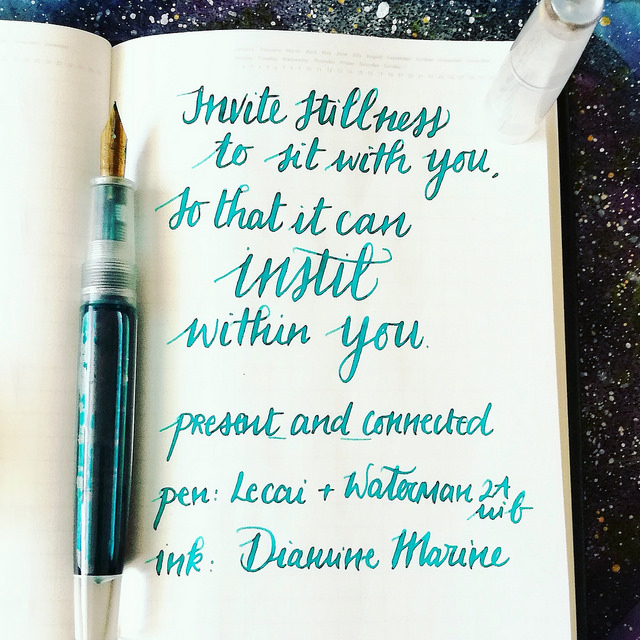 Invite stillness
to sit with you,
so that it can
instil
within you.
present_and_connected
pen: Lecai + Waterman 2A
nib
ink: Diamine Marine